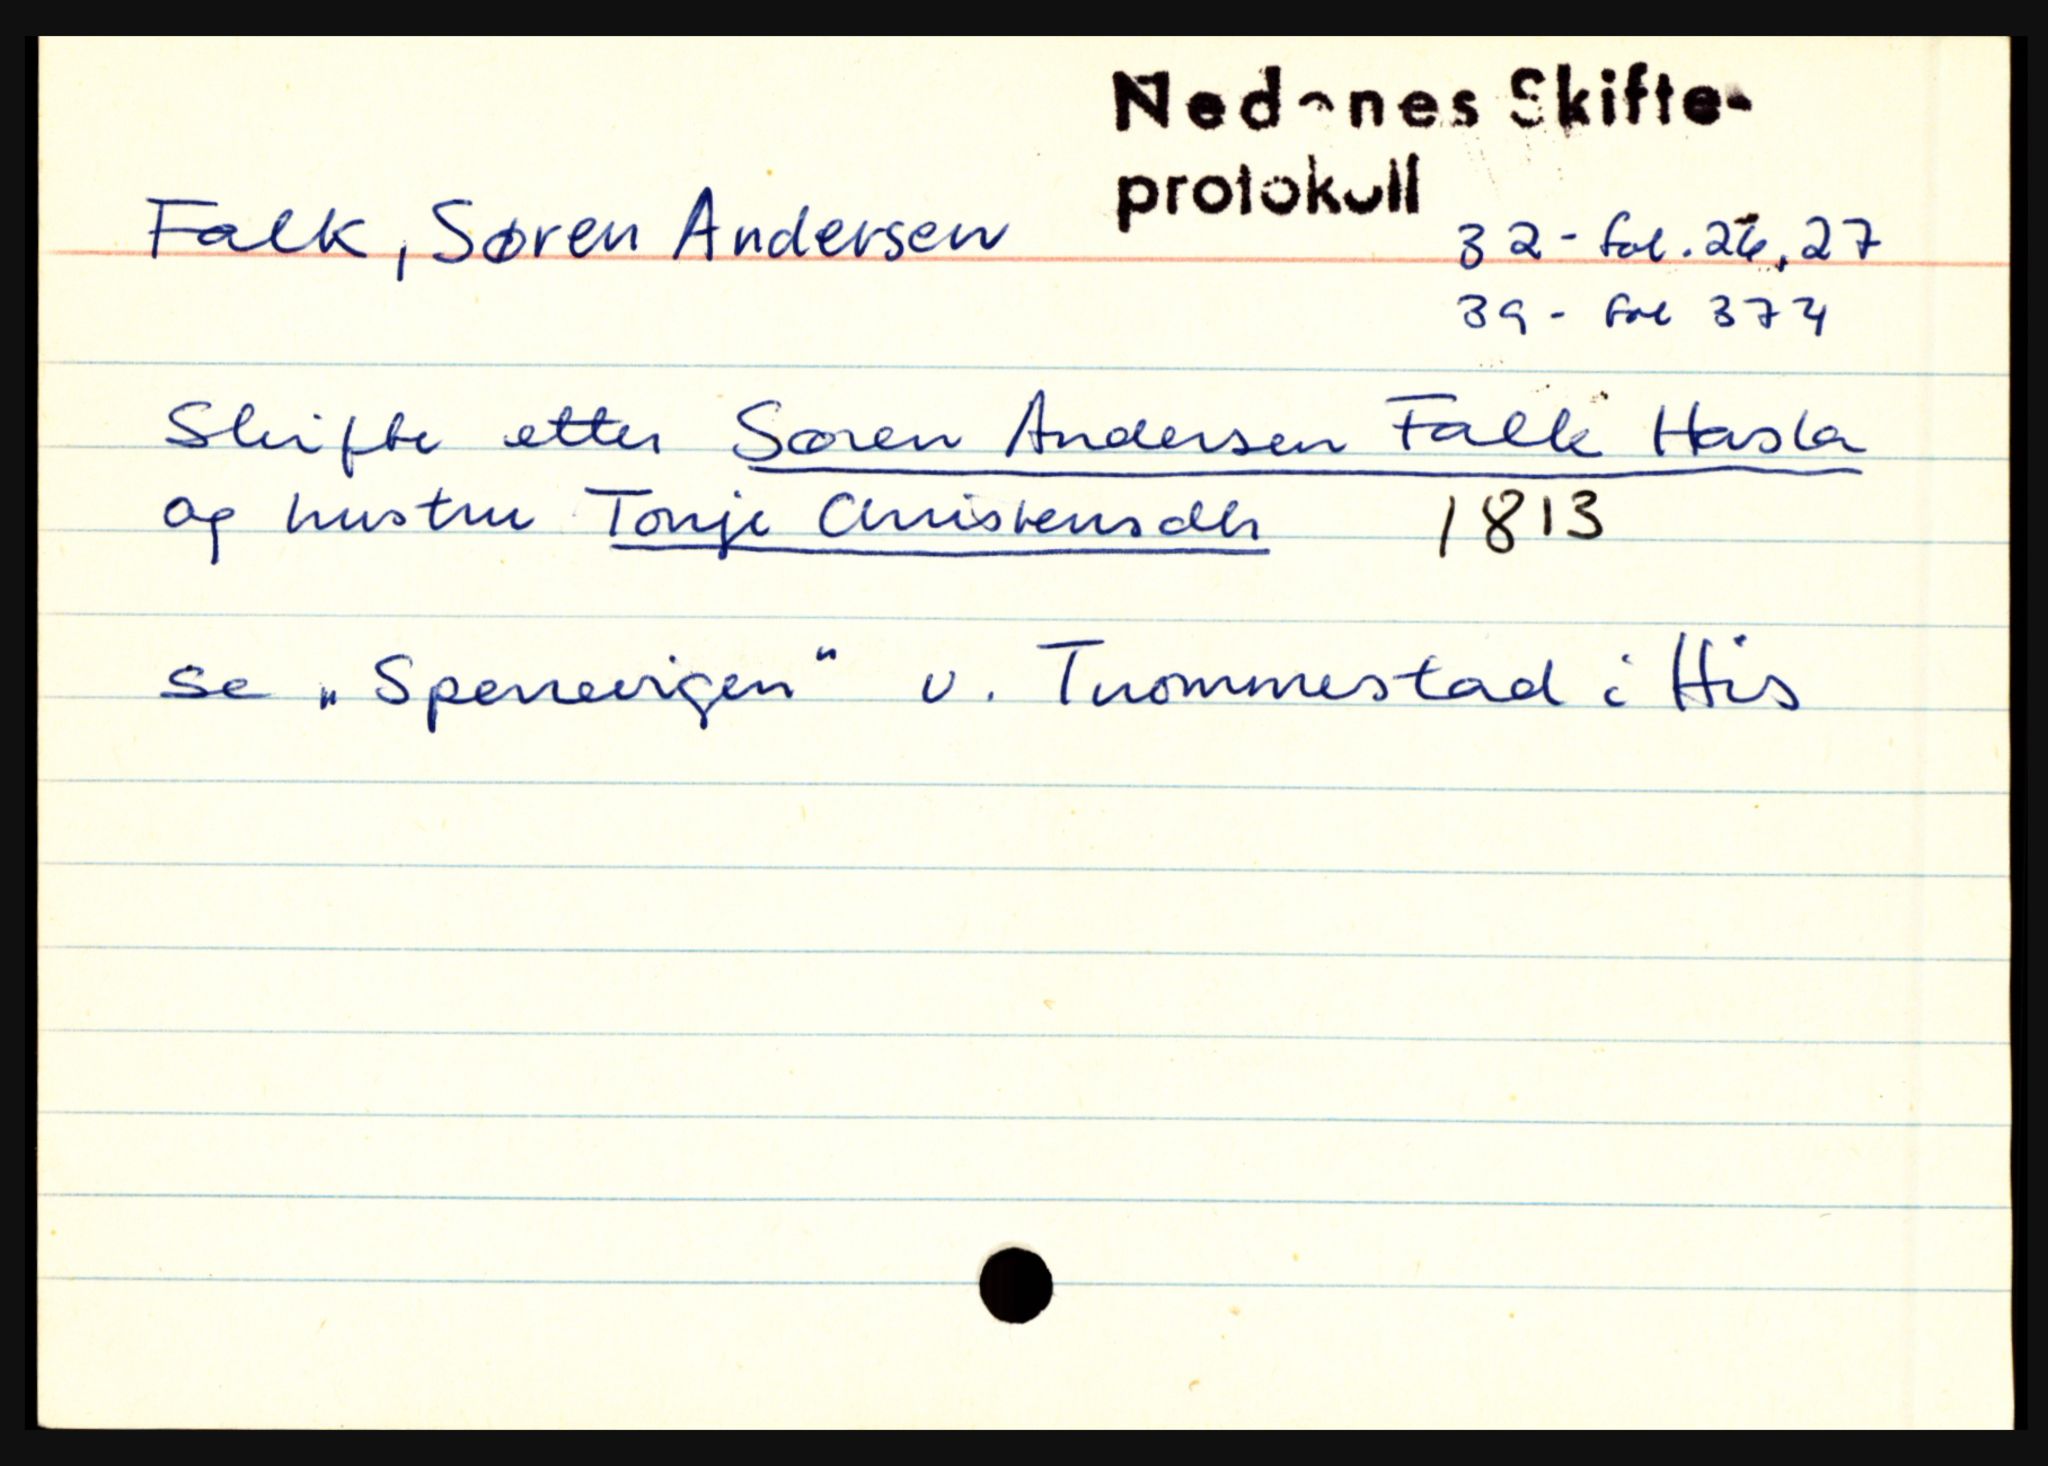 Nedenes Skifte-
protokoll
Falk, Søren Andersen
32 - fol. 26, 27
39 - fol 374
Skifte etter Søren Andersen Falk Hasla
og hustru Tonje Christensdtr 1813
se „Spennevigen" v. Trommestad i His